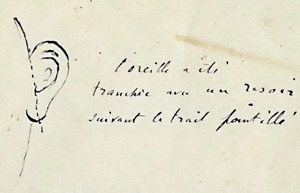 l'oreille a été
tranchée avec un rasoir
suivant le trait pointillé